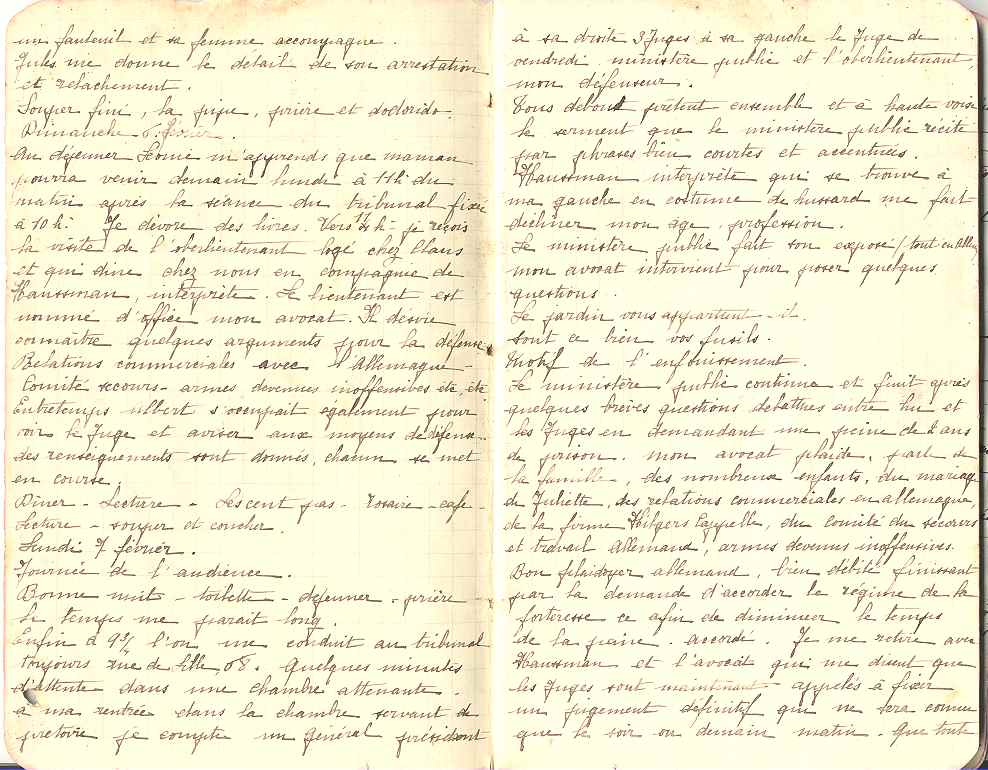 un fauteuil et sa femme accompagne.
Jules me donne le détail de son arrestation
et relachement.
Souper fini, la pipe, prière et dodorido.
Dimanche 6 Février.
Au déjeuner Léonie m'apprends que maman
pourra venir demain lundi à 11h du
matin après la séance du tribunal fixée
à 10h. Je dévore des livres. Vers 11½h. je reçois
la visite de l'oberlieutenant logé chez Claus
et qui dine chez nous en compagnie de
Haussman, interprète. Le lieutenant est
nommé d'office mon avocat. Il désire
connaître quelques arguments pour la défense
Relations commerciales avec l'allemagne-
Comité secours- armes devenues inoffensives etc, etc
Entretemps Albert s'occupait également pour
voir le Juge et aviser aux moyens de défense.
des renseignements sont donnés, chacun se met
en course.
Diner - Lecture - Les cent pas - rosaire - café -
lecture - souper et coucher.
Lundi 7 février.
Journée de l'audience.
Bonne nuit - toilette - dejeuner - prière
le temps me parait long.
Enfin à 9¾ l'on me conduit au tribunal
toujours rue de lille 68. Quelques minutes
d'attente dans une chambre attenante.
à ma rentrée dans la chambre servant de
pretoire je compte un Général président
à sa droite 3 Juges à sa gauche le Juge de
vendredi ministère public et l'oberlieutenant,
mon défenseur.
Tous debout prêtent ensemble et à haute voix
le serment que le ministère public récite
par phrases bien courtes et accentuées.
Haussman interprète qui se trouve à
ma gauche en costume de hussard me fait
décliner mon age, profession.
Le ministère public fait son exposé (tout en
mon avocat intervient pour poser quelques
questions.
Le jardin vous appartient-il.
sont ce bien vos fusils.
Motif de l'enfouissement.
Le ministère public continue et finit après
quelques brèves questions debattues entre lui et
les Juges en demandant une peine de 2 ans
de prison. mon avocat plaide, parle de
la famille, des nombreux enfants, du mariage
de Juliette, des relations commerciales en allemagne,
de la firme Hilgers Cappelle, du Comité du secours
et travail Allemand, armes devenues inoffensives.
Bon plaidoyer allemand, bien débité finissant
par la demande d'accorder le régime de la
forteresse ce afin de diminuer le temps
de la peine. accordé. Je me retire avec
Haussman et l'avocat qui me disent que
les Juges sont maintenant appelés à fixer
un jugement définitif qui ne sera connu
que le soir ou demain matin. Que toute